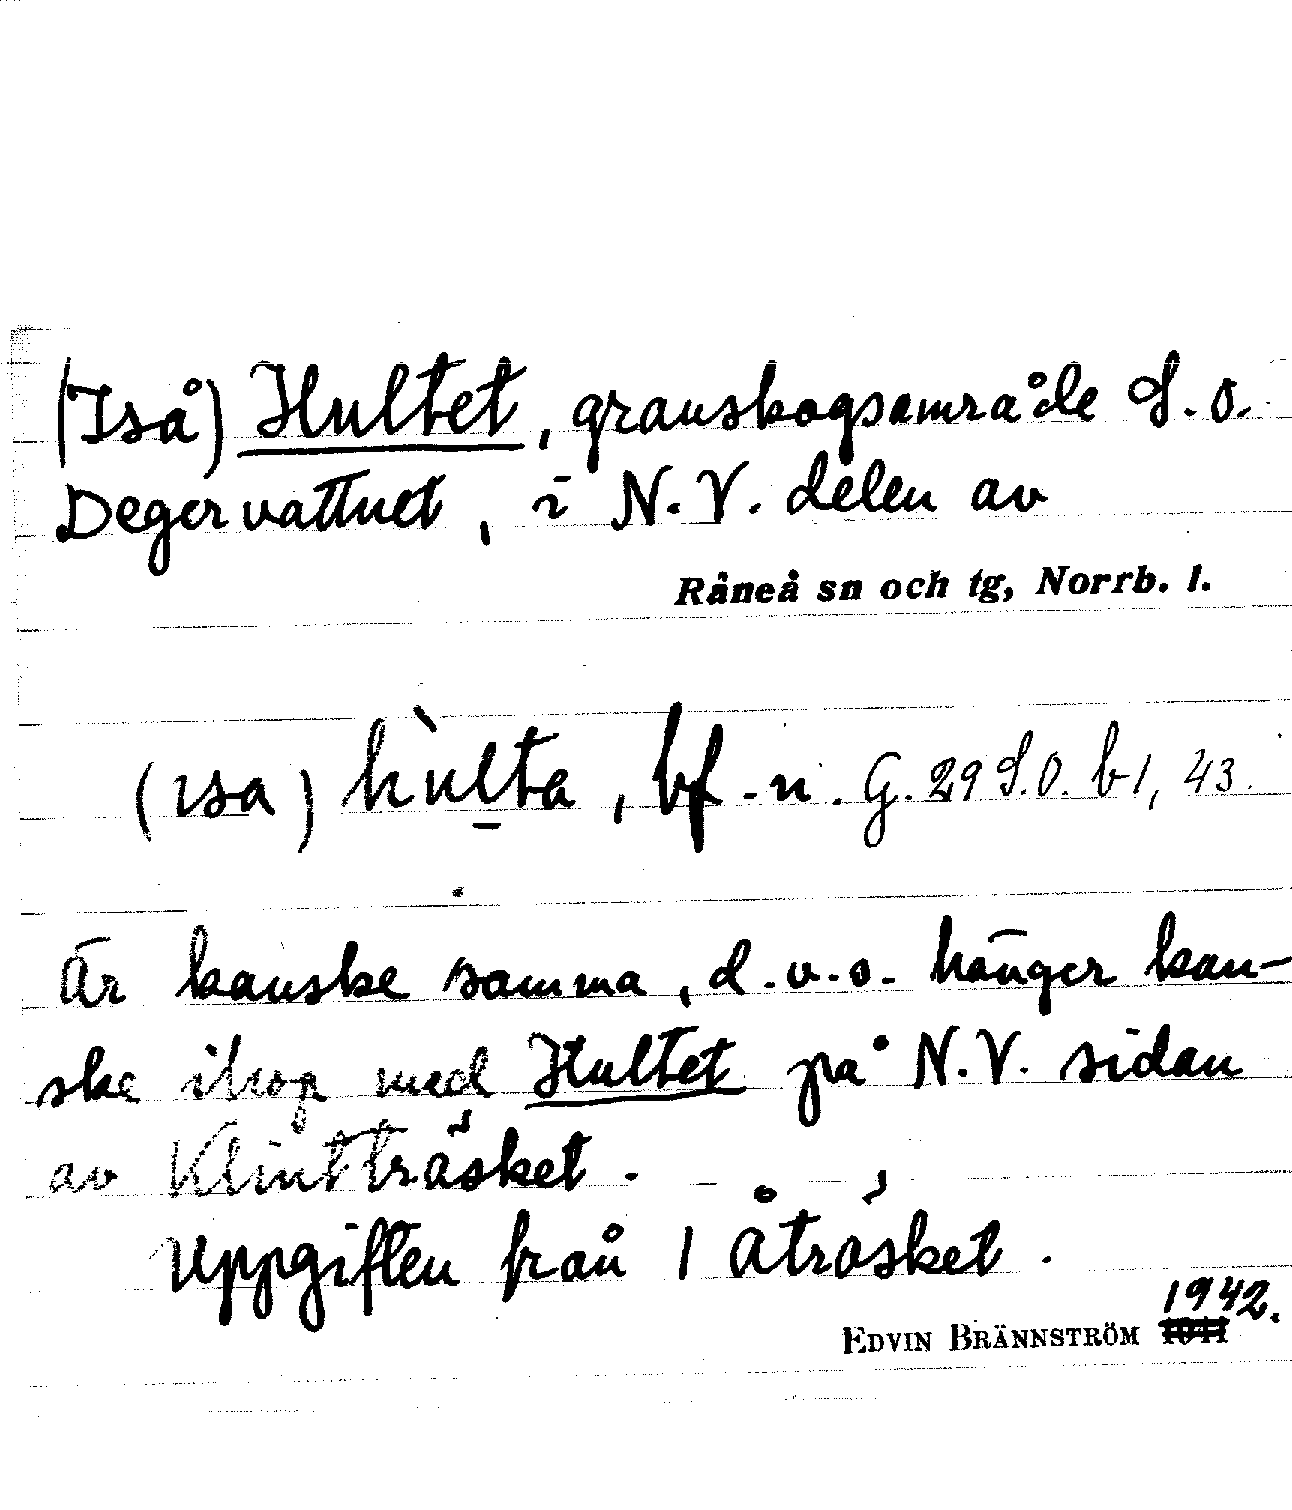 (Iså) Hultet, granskogsområde S.O.
Degervattnet, i N.V. delen av
Råneå sn och tg, Norrb. l.
(ɪsa) hùlta, bf. n. G. 29 S.O. b1, 43.
Är kanske samma, d.v.s. hänger kan-
ske ihop med Hultet på N.V. sidan
av Klintträsket.
Uppgiften från 1 Åträsket.
1942.
EDVIN BRÄNNSTRÖM 1941